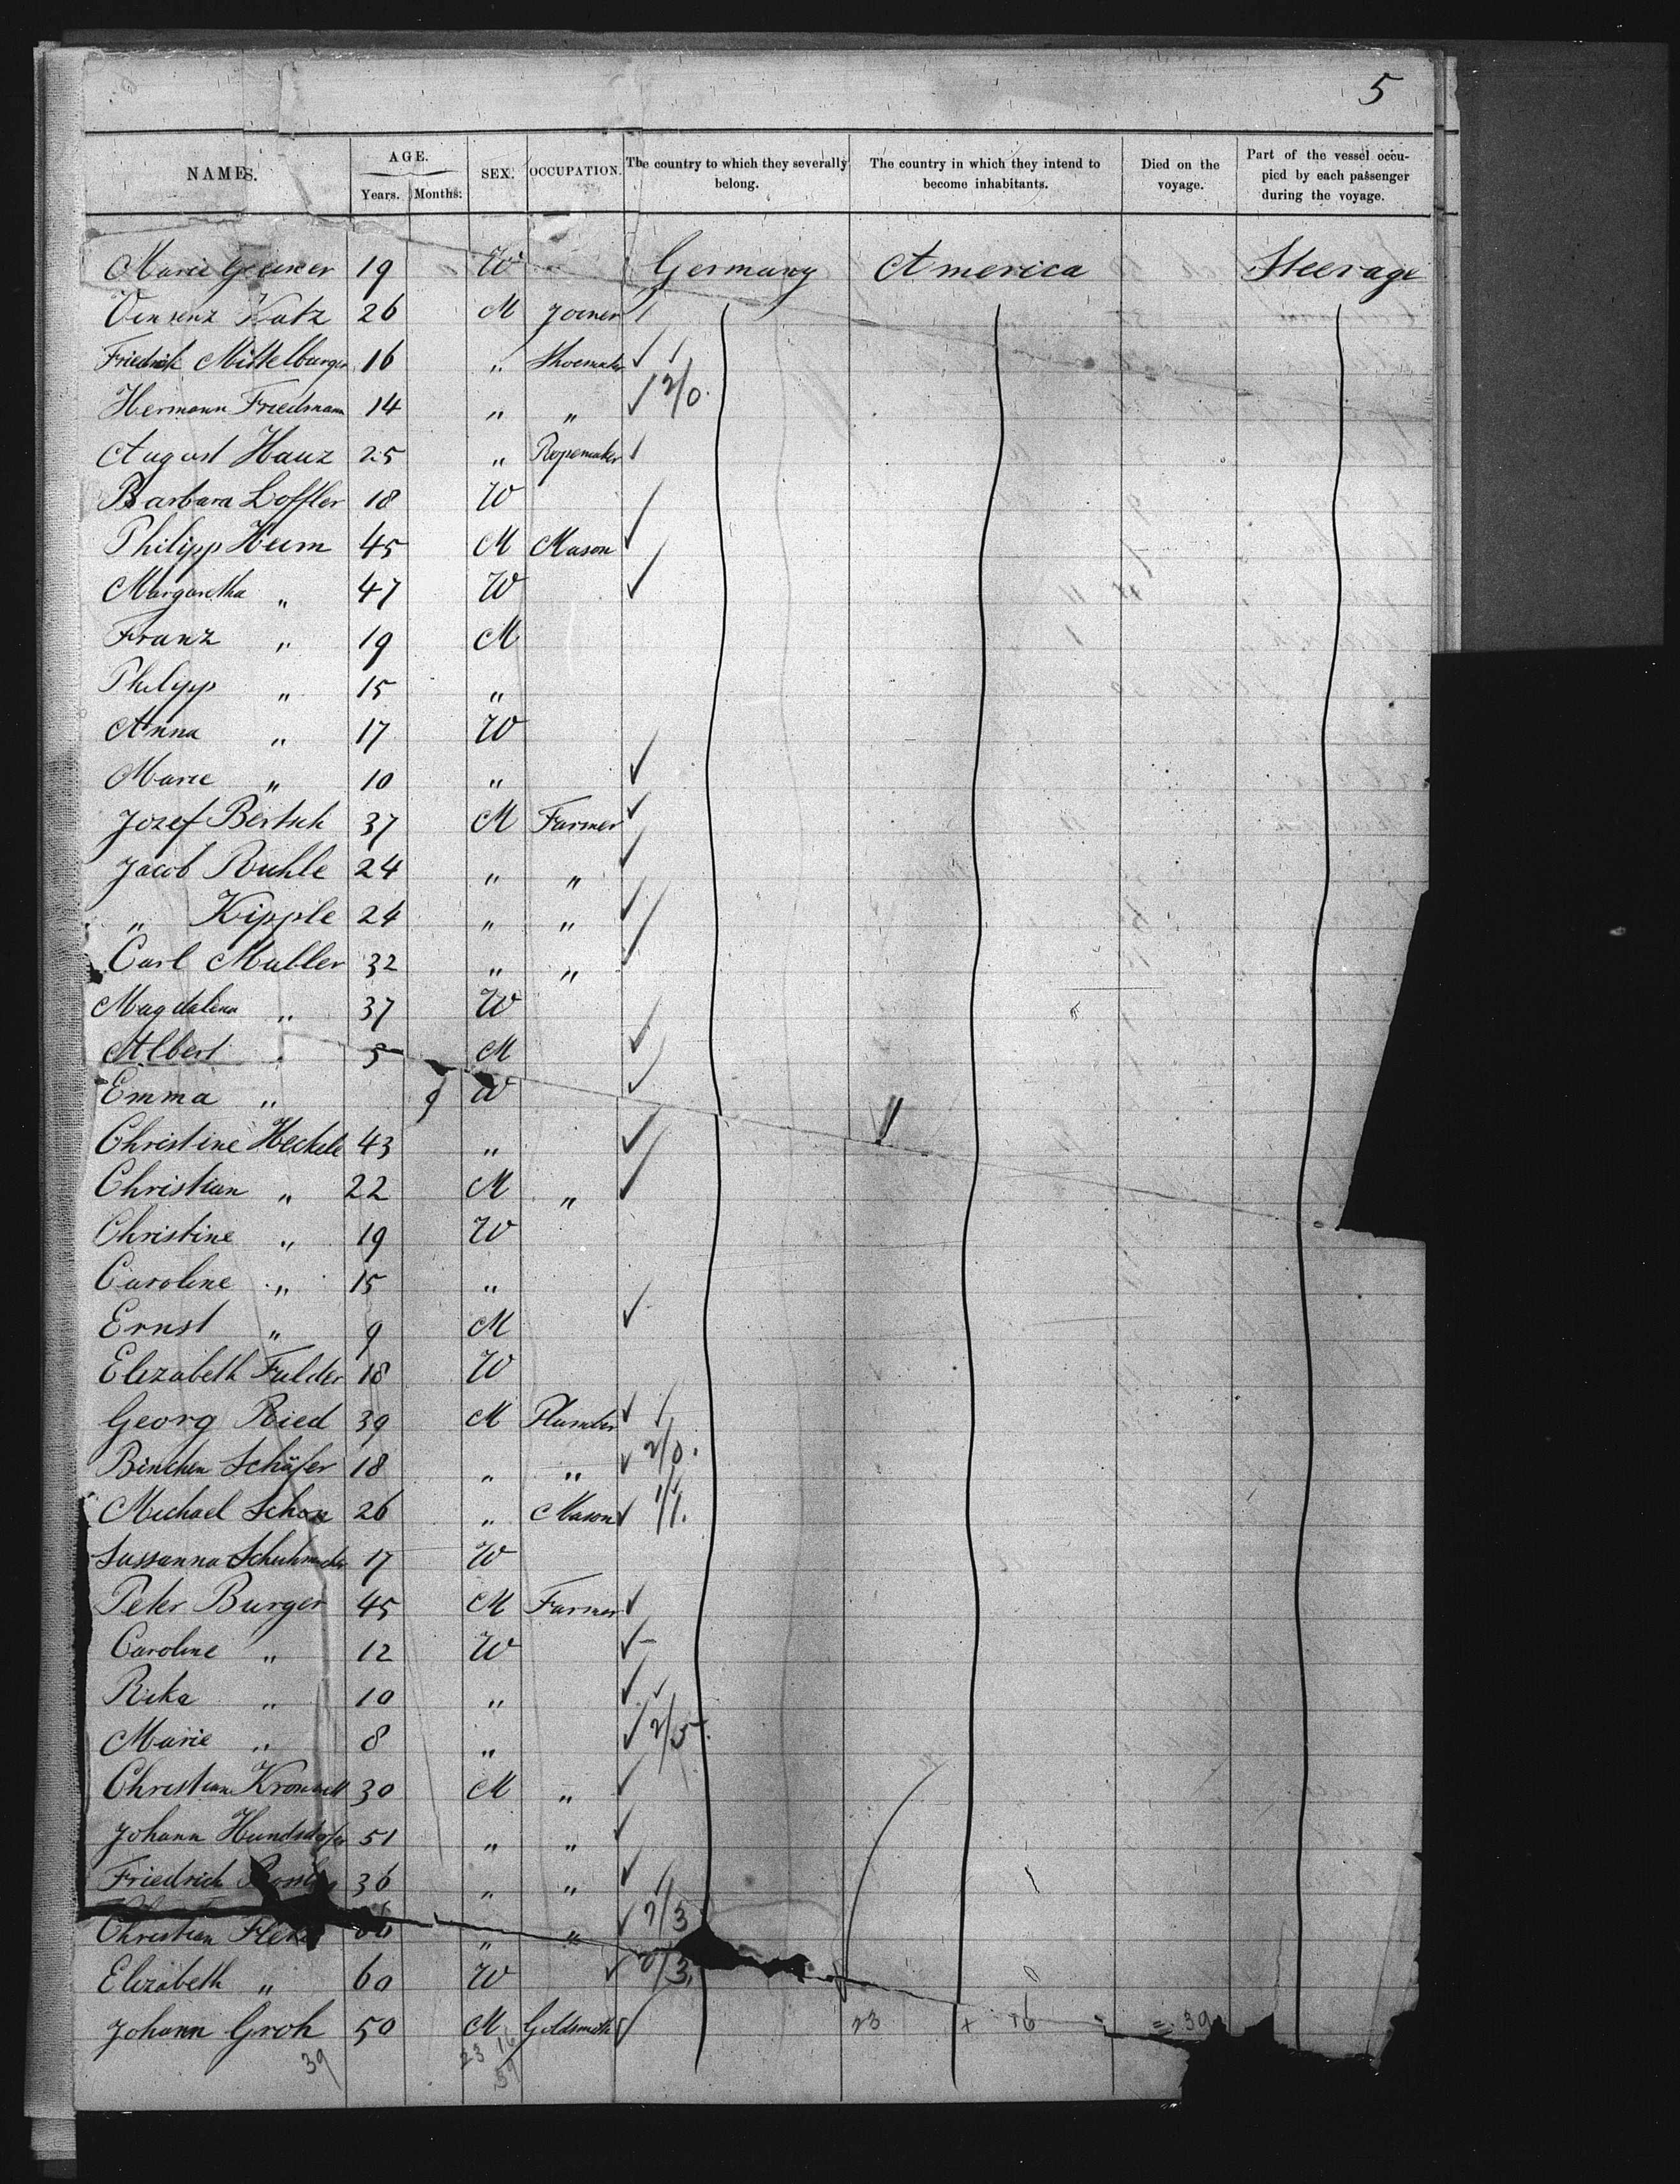 5
NAMES. AGE. Years. Months. SEX. OCCUPATION. The country to which they severally belong. The country in which they intend to become inhabitants. Died on the voyage. Part of the vessel occupied by each passenger during the voyage.
Marie 19 W Germany America Steerage
Vinsenz Katz 26 M Joiner
Friedrich Mittelburger 16 " Shoemaker
Hermann Friedmann 14 " " 2/0.
August Hauz 25 " Ropemaker
Barbara Loffler 18 W
Philipp Heim 45 M Mason
Margaretha " 47 W
Franz " 19 M
Philipp " 15 "
Anna " 17 W
Marie " 10 "
Jozef Bertsch 37 M Farmer
Jacob Ruhle 24 " "
" Kipple 24 " "
Carl Muller 32 " "
Magdalena " 37 W
Albert " 5 M
Emma " 9 W
Christine Heckele 43 "
Christian " 22 M "
Christine " 19 W
Caroline " 15 "
Ernst " 9 M
Elizabeth Fulder 18 W
Georg Ried 39 M Plumber
Binchen Schäfer 18 " " 2/0.
Michael Schon 26 " Mason 1/1.
Sussanna Schuhmacher 17 W
Peter Burger 45 M Farmer
Caroline " 12 W
Rika " 10 "
Marie " 8 " 2/5.
Christian 30 M "
Johann Hundsdorfer 51 " "
Friedrich 36 " "
Christian " " 2/3
Elizabeth " 60 W 0/3.
Johann Groh 50 M Goldsmith 23 + 16 = 39
39 23 16
39